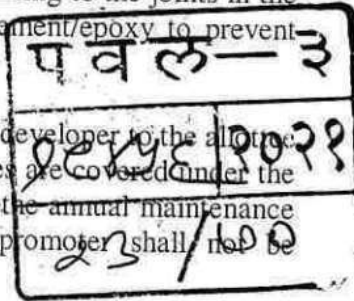 to the joints in the
/epoxy to prevent
प व ल — ३
developer to the allottee
२०२१
are covered under the
the annual maintenance
promoter shall not be
२३/१००